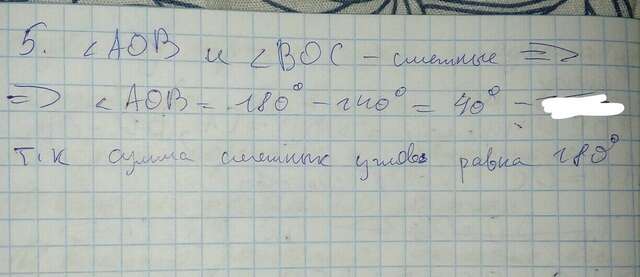 5. ∠AOB и ∠BOC – смежные =>
=> ∠AOB = 180° – 140° = 40° –
т.к сумма смежных углов равна 180°